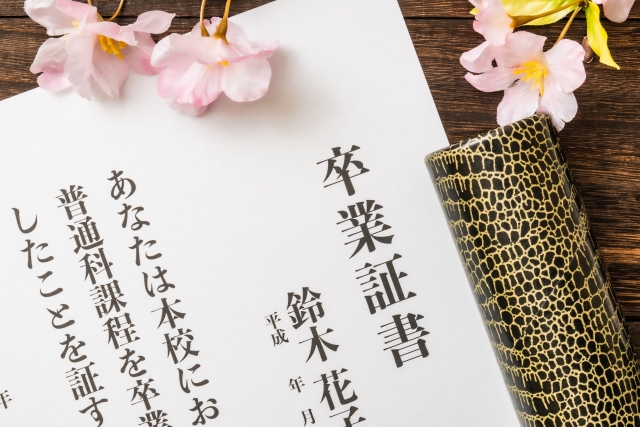 卒業証書
鈴木花子
平成　年　月
あなたは本校にお
普通科課程を卒業
したことを証す
年